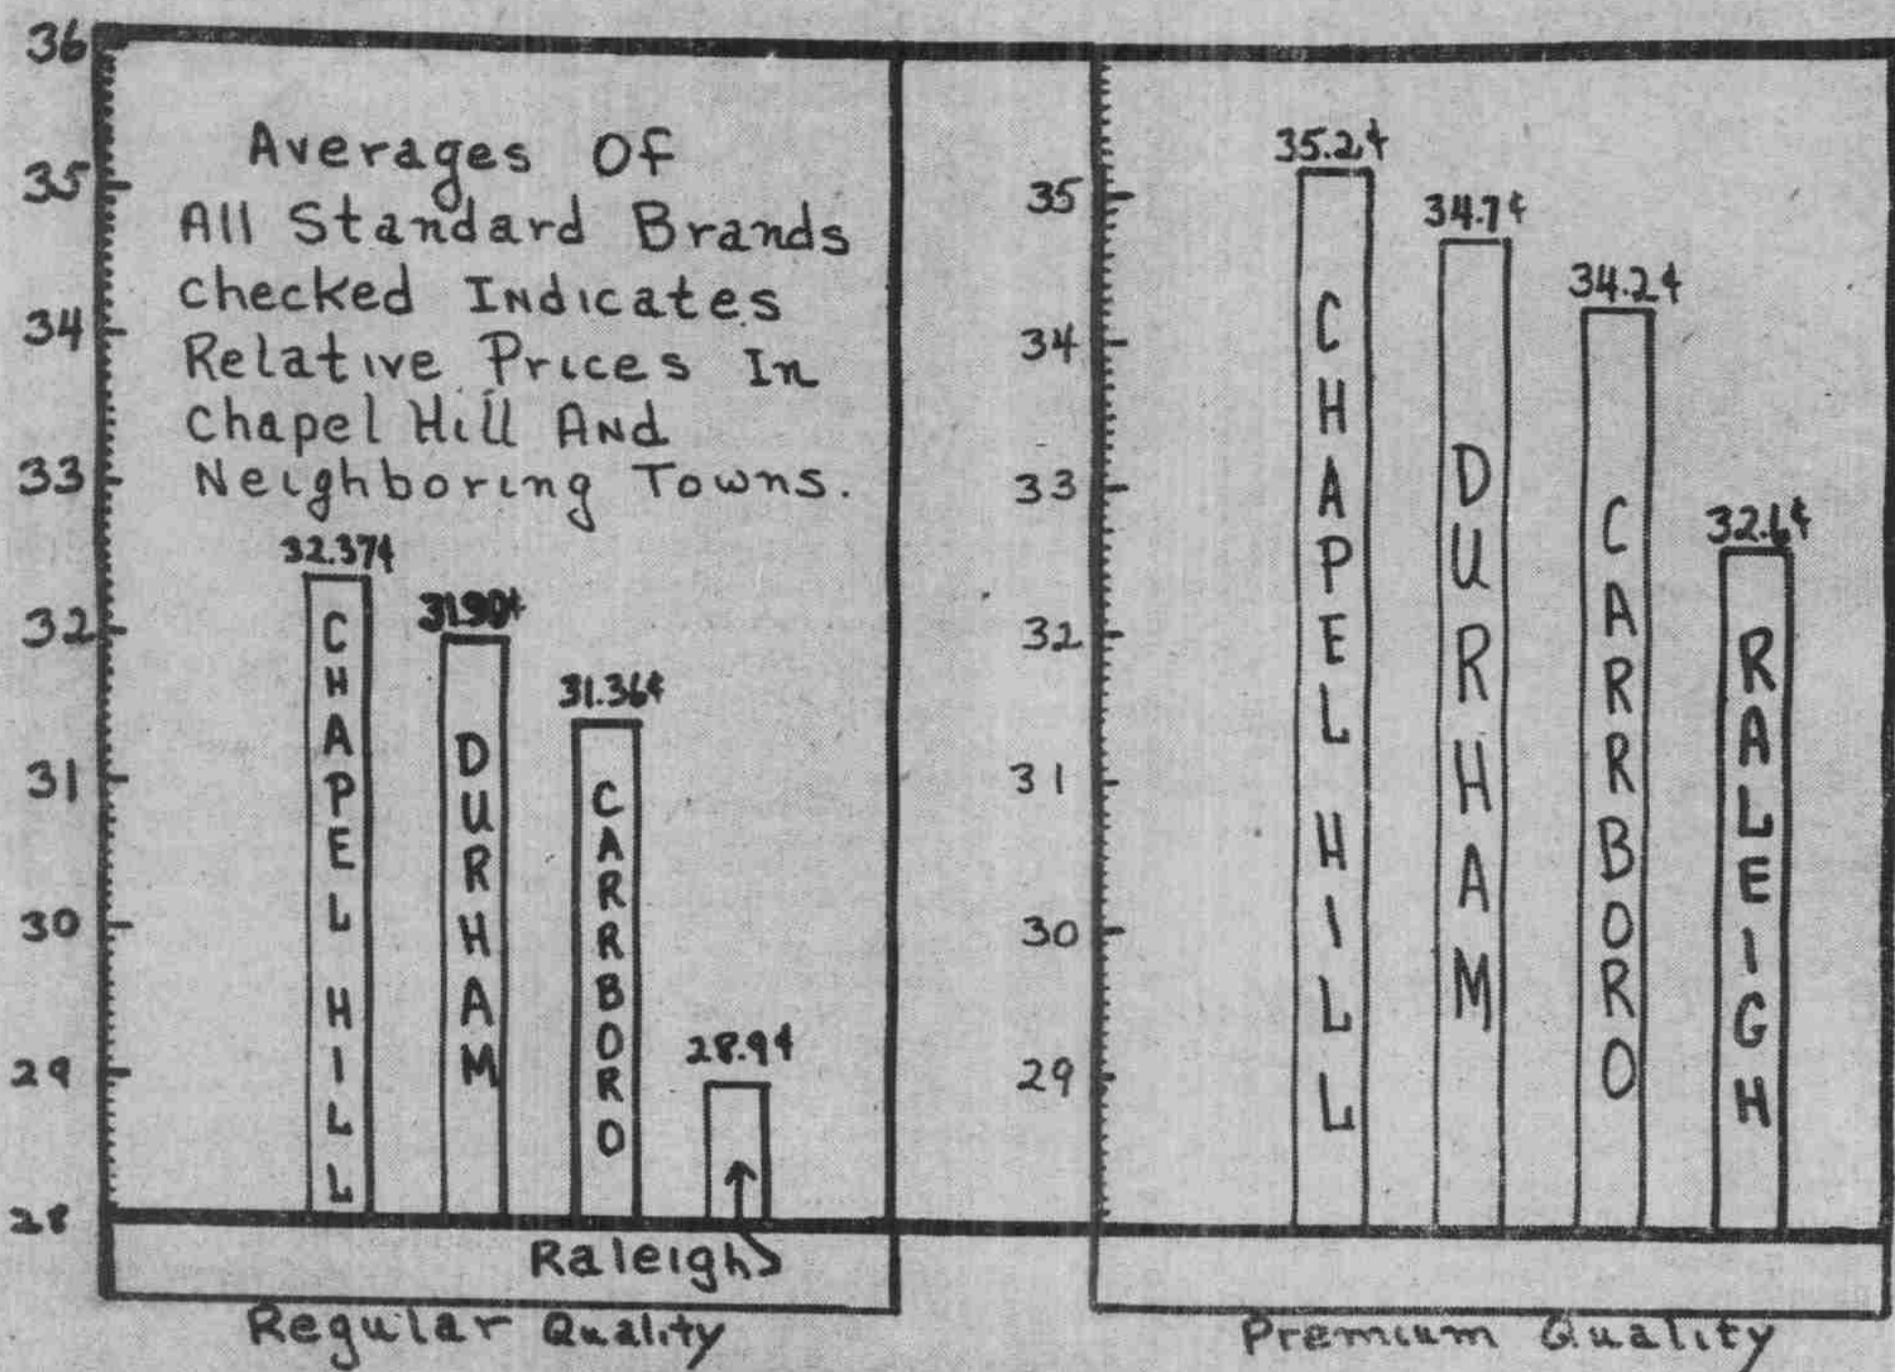 36
35
34
33
32
31
30
29
28
Averages Of
All Standard Brands
checked Indicates
Relative Prices In
Chapel Hill And
Neighboring Towns.
32.37¢
CHAPEL HILL
31.90¢
DURHAM
31.36¢
CARRBORO
28.9¢
Raleigh
Regular Quality
35
34
33
32
31
30
29
35.2¢
CHAPEL HILL
34.7¢
DURHAM
34.2¢
CARRBORO
32.6¢
RALEIGH
Premium Quality